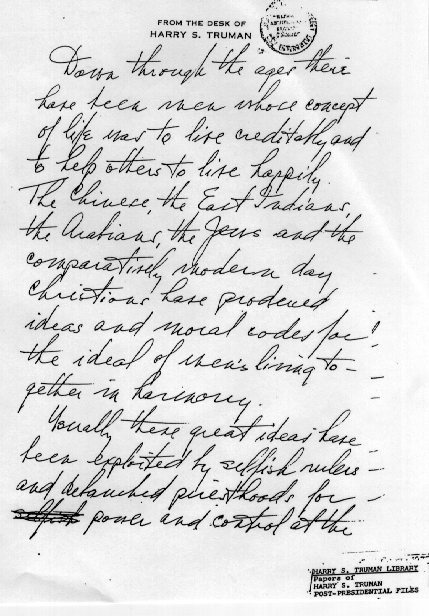 FROM THE DESK OF
HARRY S. TRUMAN
Down through the ages there
have been men whose concept
of life was to live creditably and
to help others to live happily.
The Chinese, the East Indians,
the Arabians, the Jews and the
comparatively modern day
Christians have produced
ideas and moral codes for
the ideal of men's living to-
gether in harmony.
Usually these great ideas have
been exploited by selfish rulers
and debauched priesthoods for
selfish power and control at the
HARRY S. TRUMAN LIBRARY
Papers of
HARRY S. TRUMAN
POST-PRESIDENTIAL FILES